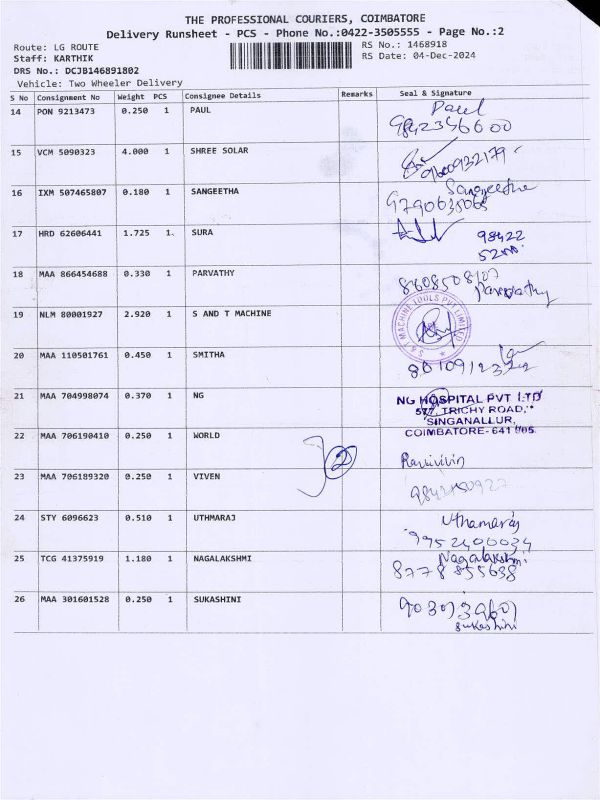 THE PROFESSIONAL COURIERS, COIMBATORE
Delivery Runsheet - PCS - Phone No.:0422-3505555 - Page No.:2
Route: LG ROUTE
RS No.: 1468918
Staff: KARTHIK
RS Date: 04-Dec-2024
DRS No.: DCJB146891802
Vehicle: Two Wheeler Delivery
S No Consignment No Weight PCS Consignee Details Remarks Seal & Signature
14 PON 9213473 0.250 1 PAUL Paul
9842346600
15 VCM 5090323 4.000 1 SHREE SOLAR
9600932179
16 IXM 507465807 0.180 1 SANGEETHA Sangeetha
17 HRD 62606441 1.725 1. SURA
98422
18 MAA 866454688 0.330 1 PARVATHY
Parvathy
19 NLM 80001927 2.920 1 S AND T MACHINE S & T MACHINE TOOLS PVT LIMITED
20 MAA 110501761 0.450 1 SMITHA
21 MAA 704998074 0.370 1 NG NG HOSPITAL PVT LTD
577, TRICHY ROAD,
SINGANALLUR,
COIMBATORE- 641 005.
22 MAA 706190410 0.250 1 WORLD
2
23 MAA 706189320 0.250 1 VIVEN
24 STY 6096623 0.510 1 UTHMARAJ Uthamaraj
9952400034
25 TCG 41375919 1.180 1 NAGALAKSHMI Nagalakshmi
8778855638
26 MAA 301601528 0.250 1 SUKASHINI
Sukashini